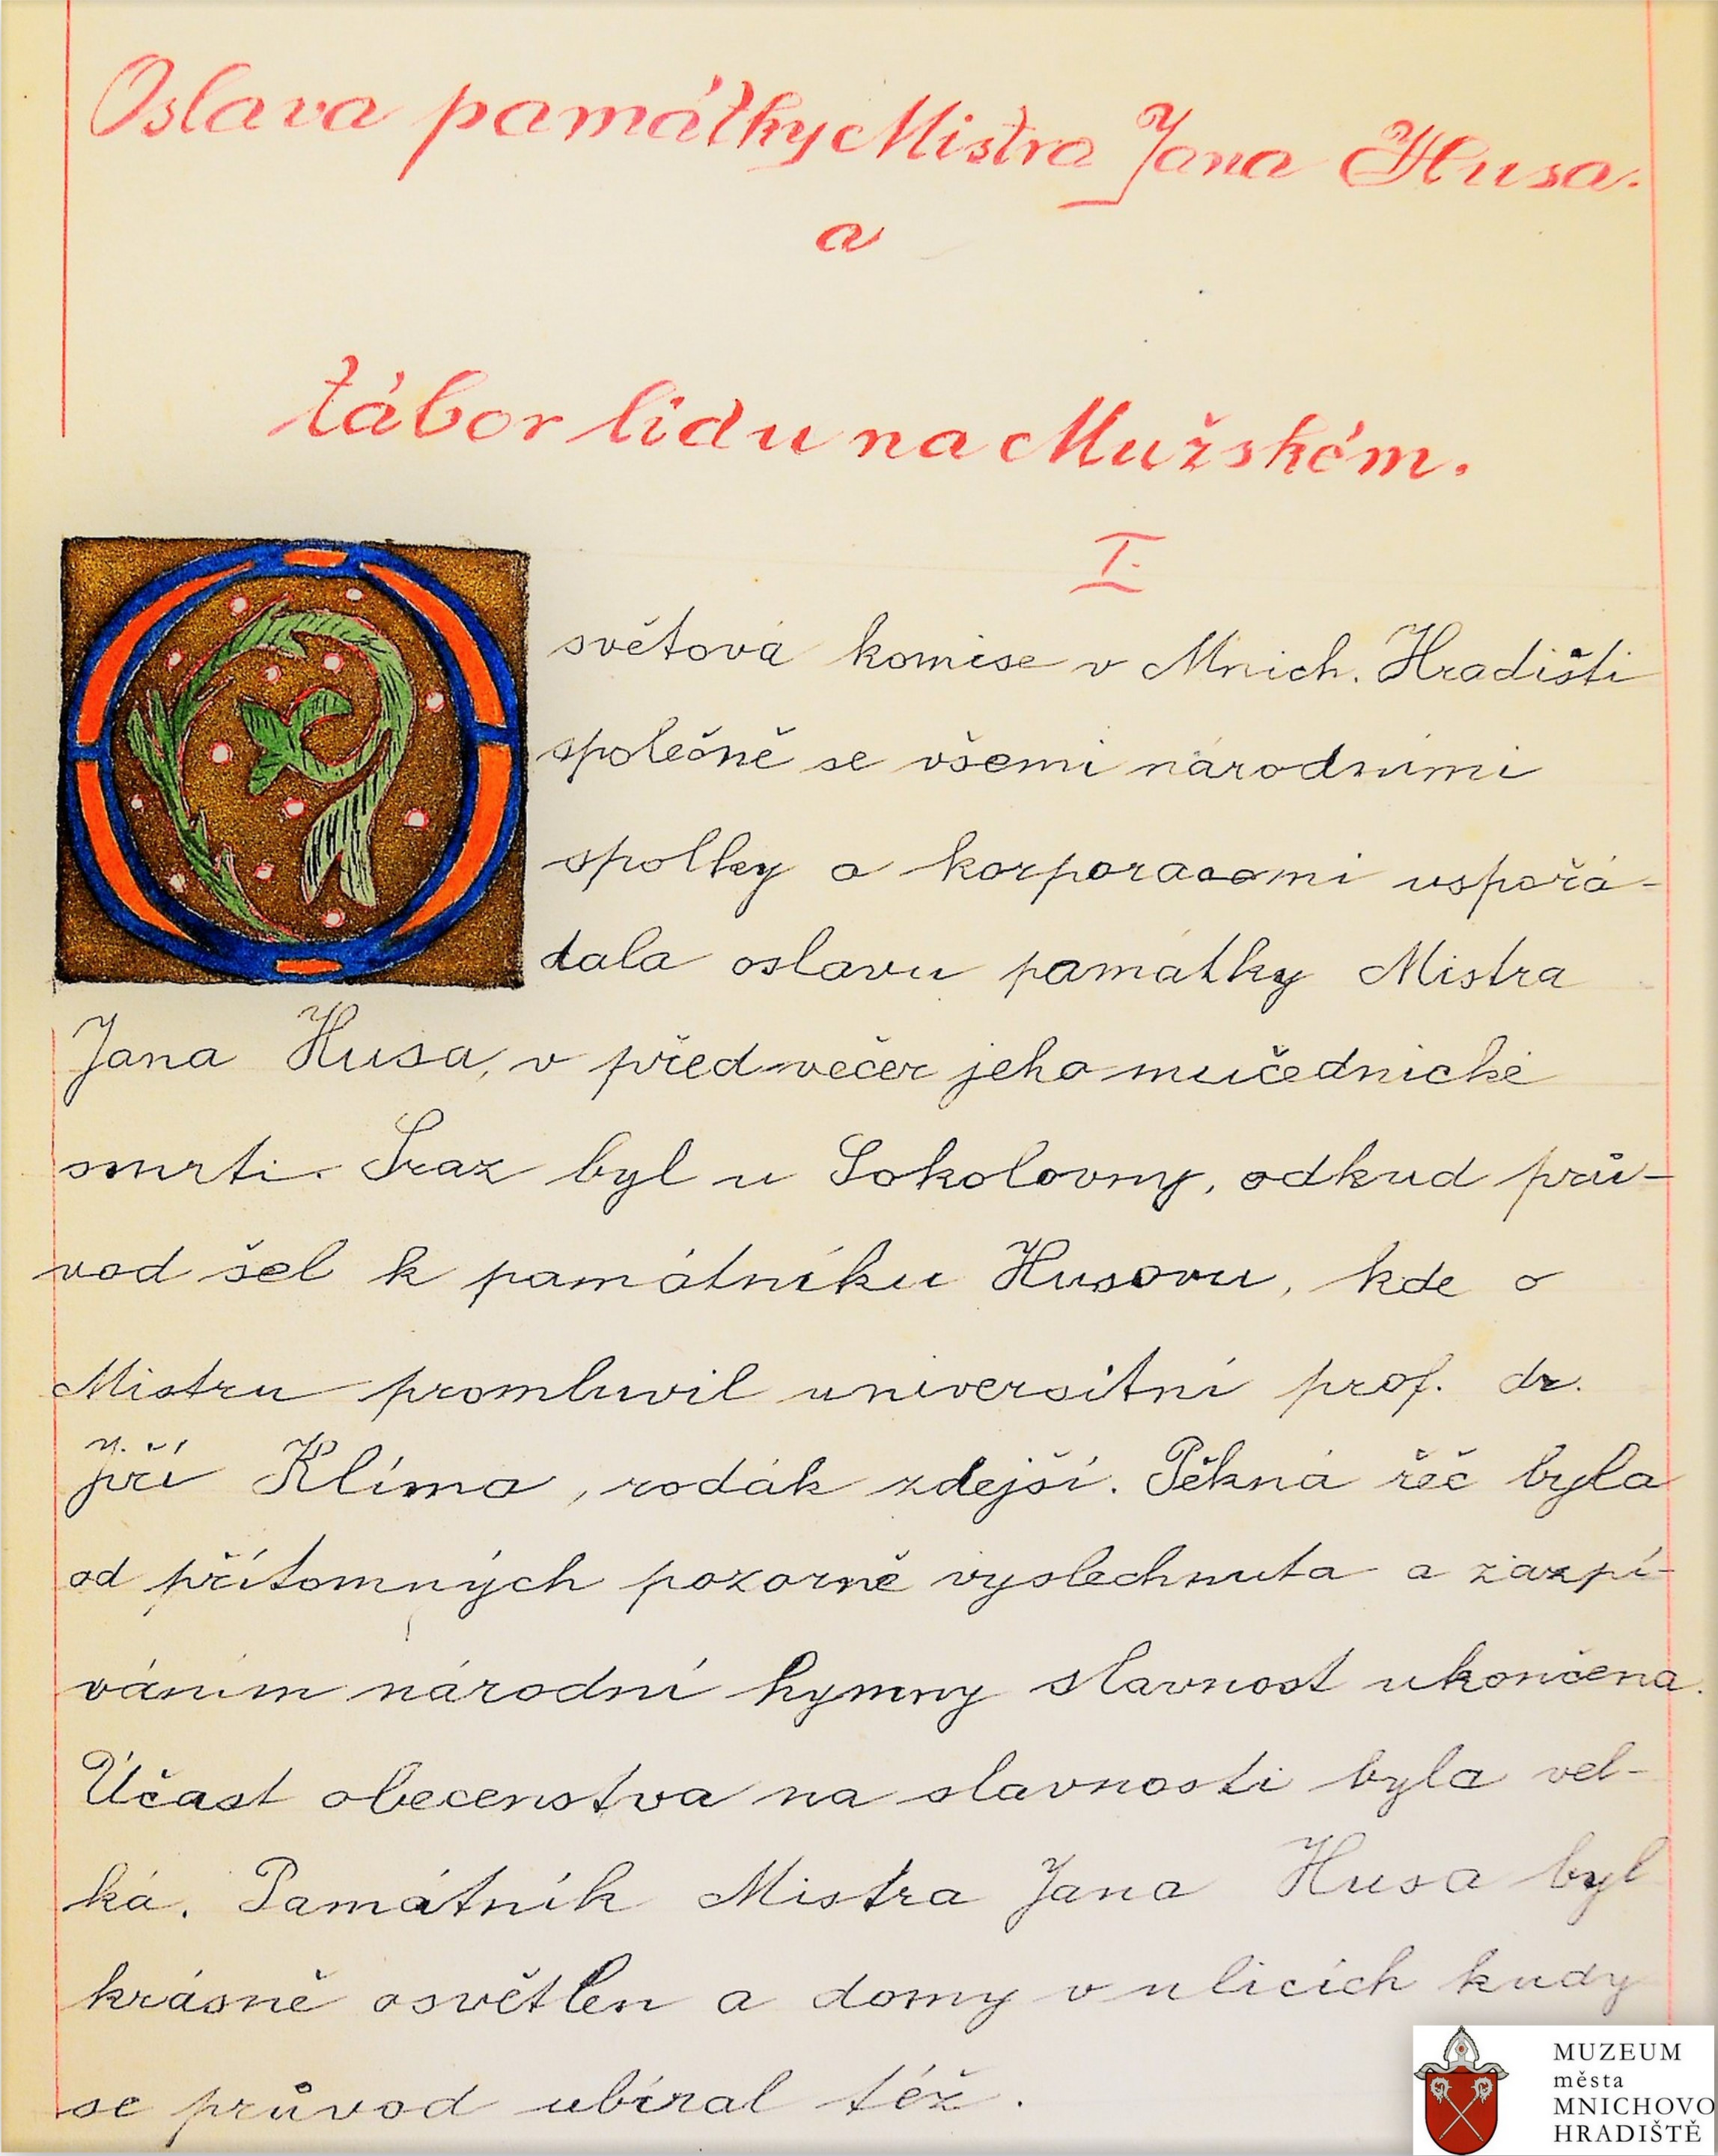 Oslava památky Mistra Jana Husa.
a
tábor lidu na Mužském.
I.
Osvětová komise v Mnich. Hradišti
společně se všemi národními
spolky a korporacemi uspořá-
dala oslavu památky Mistra
Jana Husa, v předvečer jeho mučednické
smrti. Sraz byl u Sokolovny, odkud prů-
vod šel k památníku Husovu, kde o
Mistru promluvil universitní prof. dr.
Jiří Klíma, rodák zdejší. Pěkná řeč byla
od přítomných pozorně vyslechnuta a zazpí-
váním národní hymny slavnost ukončena.
Účast obecenstva na slavnosti byla vel-
ká. Památník Mistra Jana Husa byl
krásně osvětlen a domy v ulicích kudy
se průvod ubíral též.
MUZEUM
města
MNICHOVO
HRADIŠTĚ